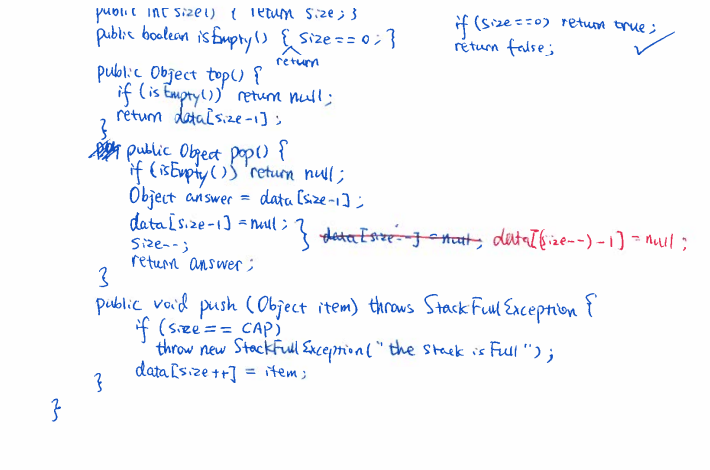 public int size() { return size; }
public boolean isEmpty() { size == 0 ; }
return
if (size==0) return true;
return false;
public Object top() {
if (isEmpty()) return null;
return data[size-1] ;
}
public Object pop() {
if (isEmpty()) return null;
Object answer = data[size-1] ;
data[size-1] = null ; } data[size--] = null ; data[(size--)-1] = null ;
size-- ;
return answer ;
}
public void push (Object item) throws StackFullException {
if (size == CAP)
throw new StackFullException( " the stack is Full " ) ;
data[size++] = item ;
}
}